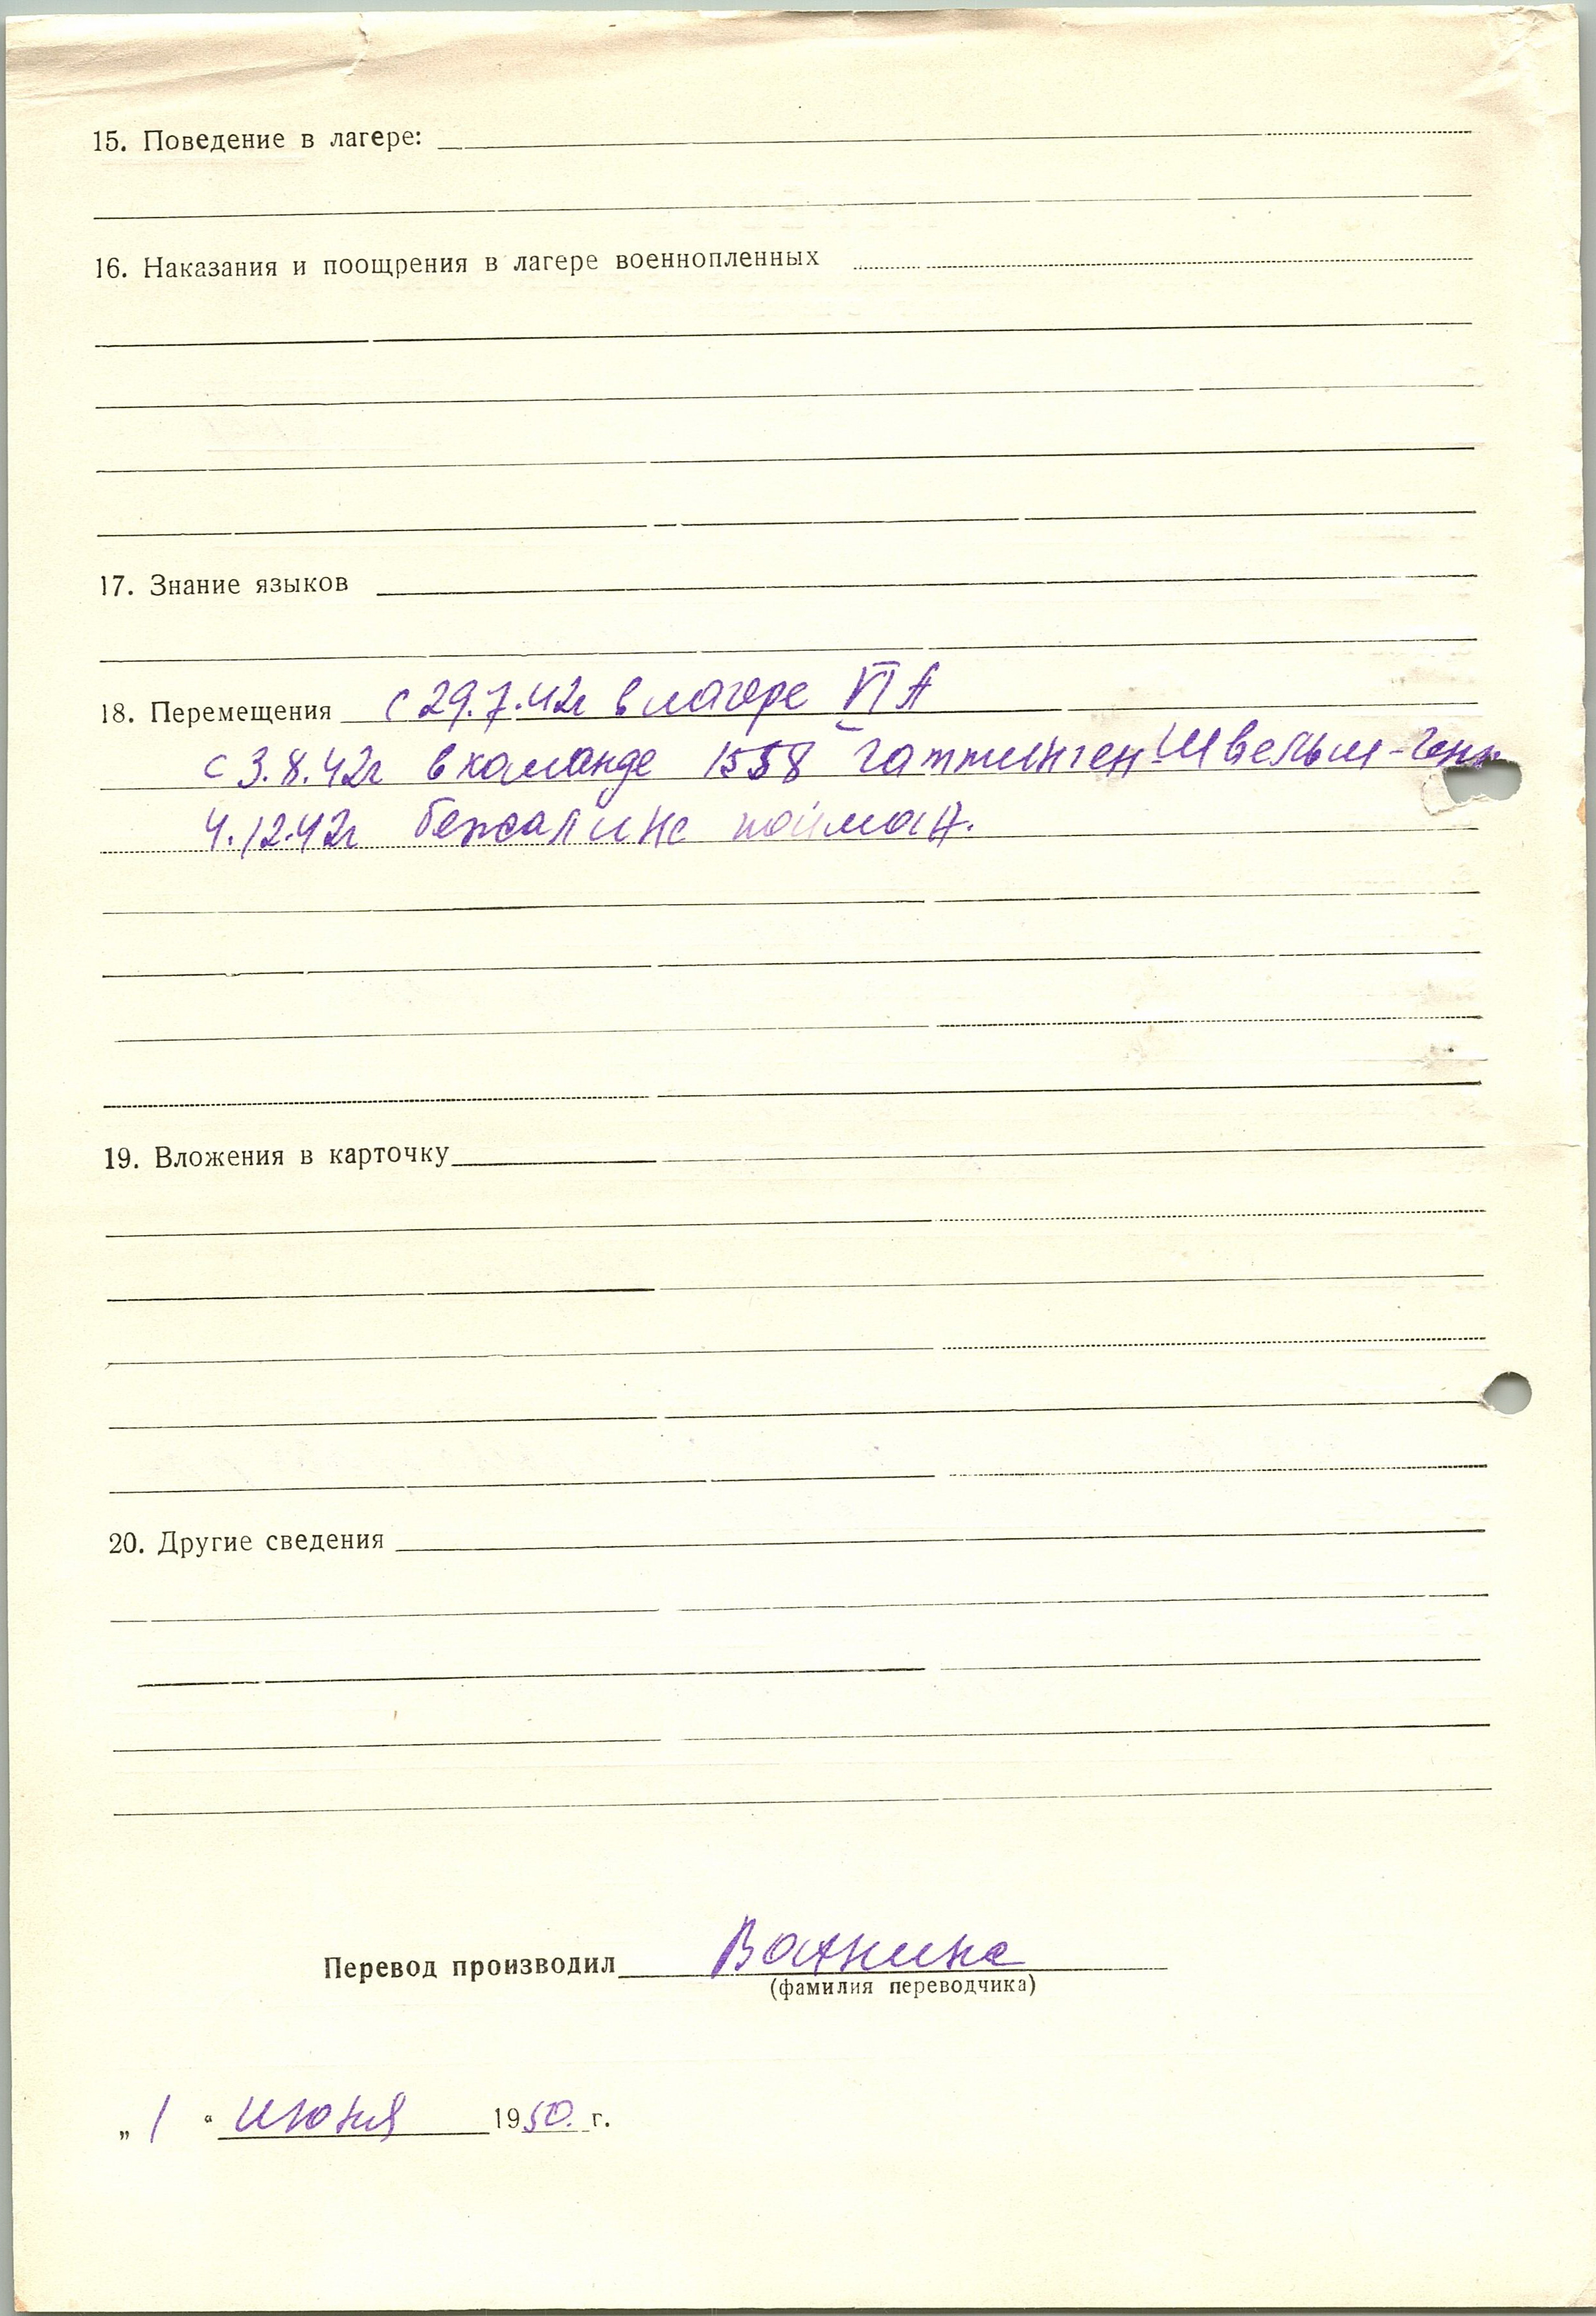 15. Поведение в лагере:
16. Наказания и поощрения в лагере военнопленных
17. Знание языков
18. Перемещения с 29.7.42г в лагере VI А
с 3.8.42г в команде 1558 Гаттинген-Швельм-
4.12.42г бежал и не пойман.
19. Вложения в карточку
20. Другие сведения
Перевод производил Ванина
(фамилия переводчика)
„ 1 “ июня 1950. г.